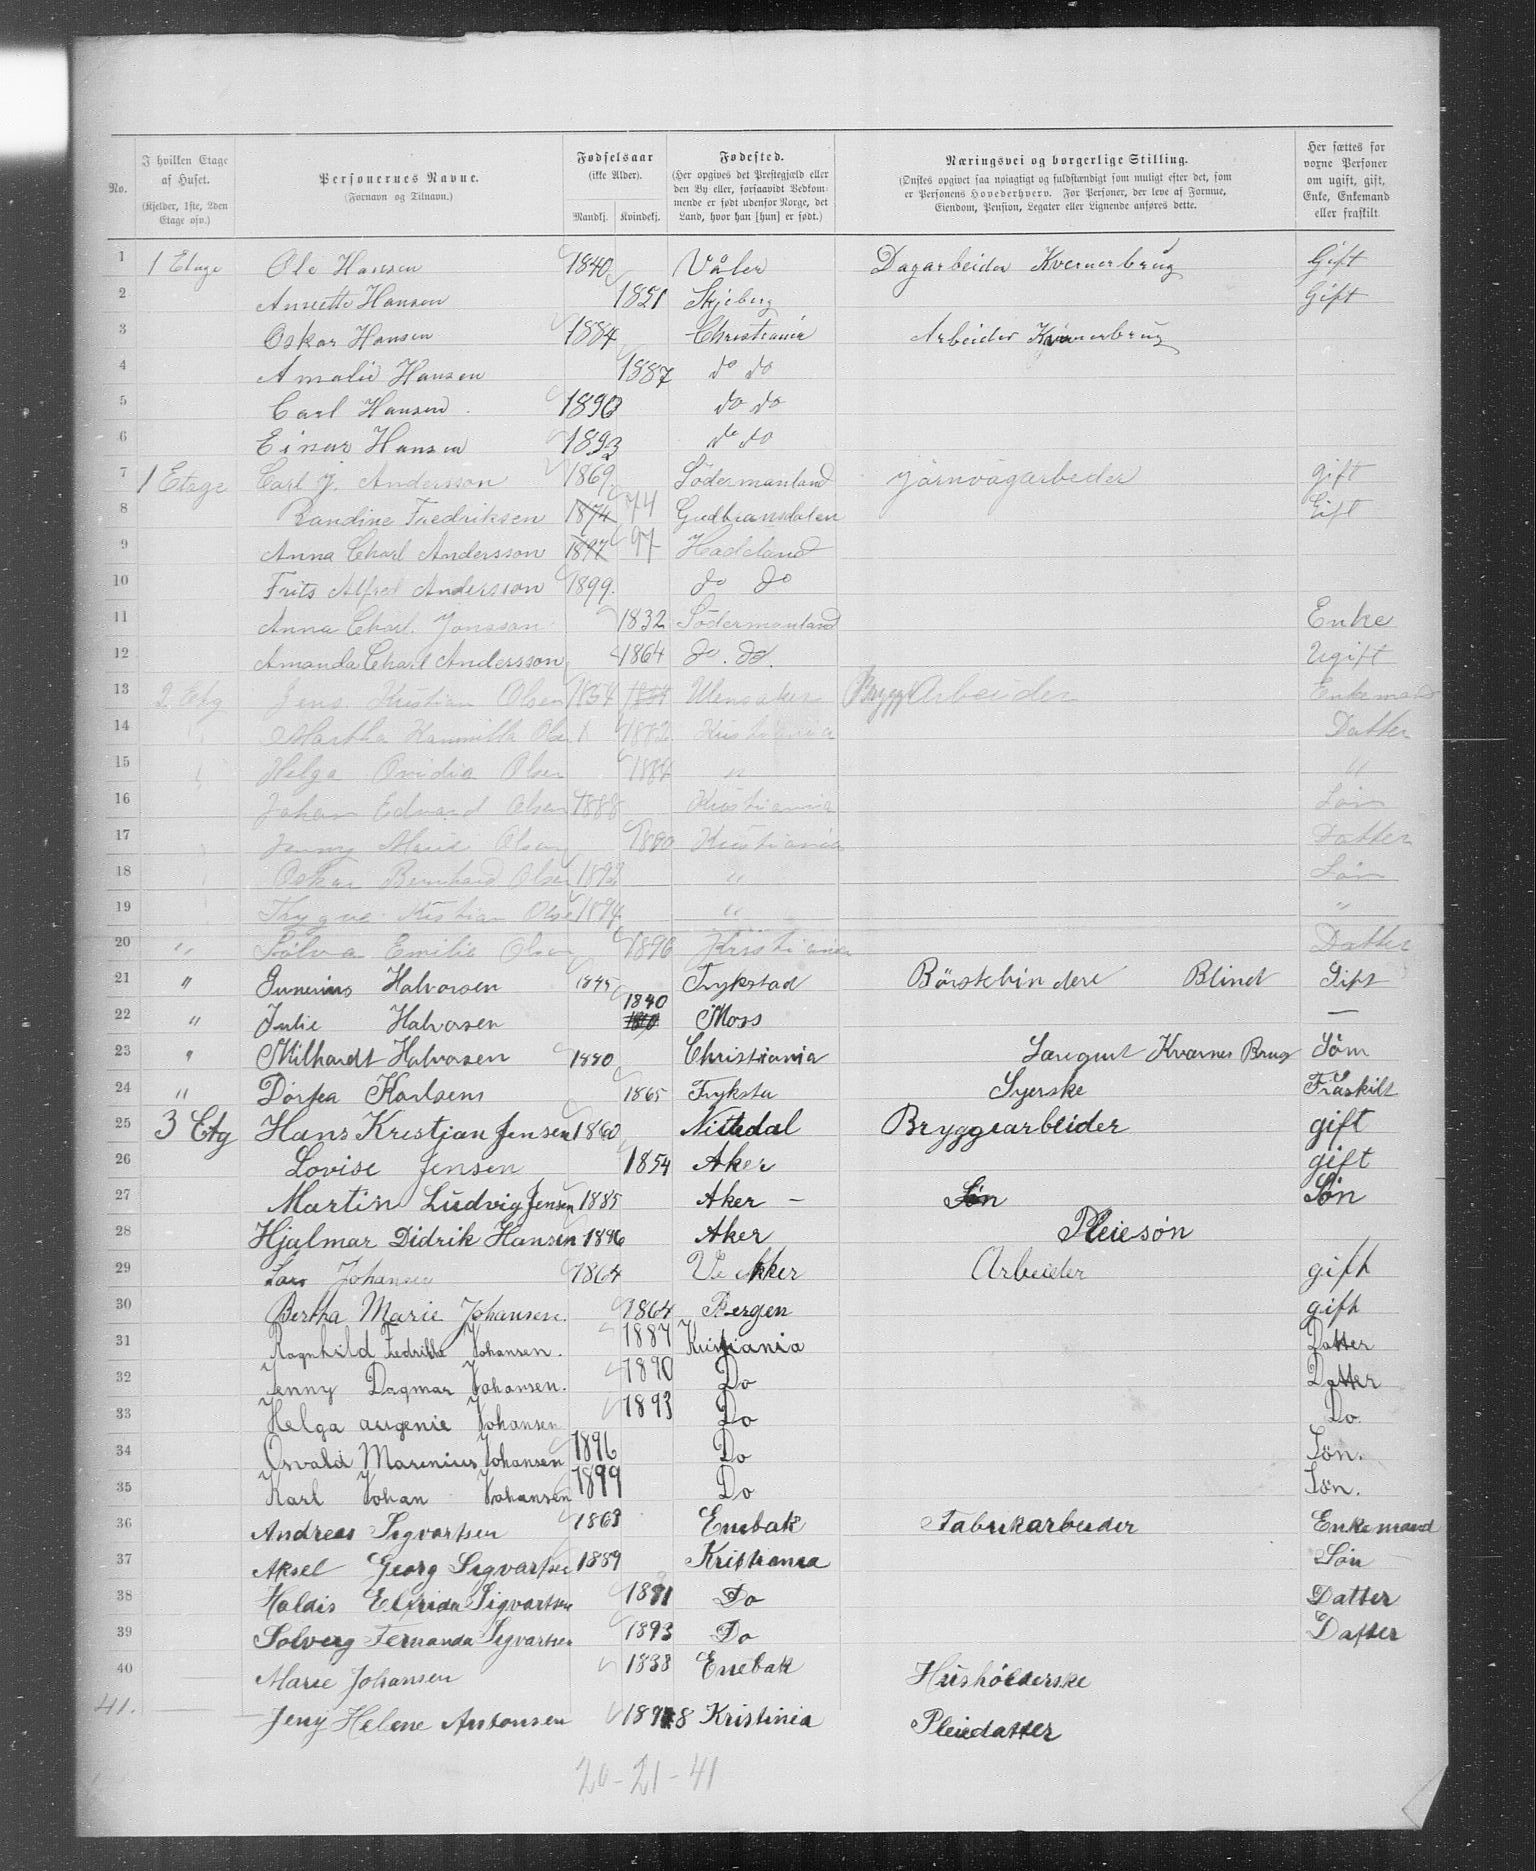 No. I hvilken Etage af Huset. (Kjelder, 1ste, 2den Etage osv.) Personernes Navne. (Fornavn og Tilnavn.) Fødselsaar (ikke Alder). Mandkj. Kvindekj. Fødested. (Her opgives det Prestegjæld eller den By eller, forsaavidt Vedkommende er født udenfor Norge, det Land, hvor han [hun] er født.) Næringsvei og borgerlige Stilling. (Ønskes opgivet saa nøiagtigt og fuldstændigt som muligt efter det, som er Personens Hovederhverv. For Personer, der leve af Formue, Eiendom, Pension, Legater eller Lignende anføres dette. Her sættes for voxne Personer om ugift, gift, Enke, Enkemand eller fraskilt
1 1 Etage Ole Hansen 1840 Våler Dagarbeider Kvernerbrug Gift
2 Annette Hansen 1851 Skjeberg Gift
3 Oskar Hansen 1884 Christiania Arbeider Kvernerbrug
4 Amalie Hansen 1887 do do
5 Carl Hansen 1890 do do
6 Einar Hansen 1893 do do
7 1 Etage Carl J. Andersson 1869 Södermanland jårnvågarbeder gift
8 Randine Fredriksen 1874 74 Gudbransdalen Gift
9 Anna Charl Andersson 1897 97 Hadeland
10 Frits Alfred Andersson 1899. do do
11 Anna Charl. Jonsson 1832 Södermanland Enke
12 Amanda Charl Andersson 1864 do. do. Ugift
13 2 Etg Jens Kristian Olsen 1854 Ulensaker Brygge Arbeider Enkemand
14 Martha Kammilla Olsen 1882 Kristiania Datter
15 Helga Ovidia Olsen " "
16 Johan Edvard Olsen 1888 Kristiania Søn
17 Jenny Marie Olsen 1890 Kristiania Datter
18 Oskar Bernhard Olsen " Søn
19 Trygve Kristian Olsen 1894 " "
20 " Sølva Emilie Olsen 1896 Kristiania Datter
21 " Gunerius Halvorsen 1845 Trykstad Börstebindere Blind Gift
22 " Julie Halvorsen 1840 Moss —
23 " Milhardt Halvorsen 1880 Christiania Kværner Brug Søm
24 " Dortea Karlsens 1865 Tryksta Syerske Fraskilt
25 3 Etg Hans Kristjan Jensen 1860 Nittedal Bryggearbeider gift
26 Lovise Jensen 1854 Aker gift
27 Martin Ludvig Jensen 1885 Aker – Søn Søn
28 Hjalmar Didrik Hansen 1896 Aker Pleiesøn
29 Lars Johansen 1864 V. Aker Arbeider gift
30 Bertha Marie Johansen. 1864 Bergen gift
31 Ragnhild Fredrikke Johansen. 1887 Kristiania Datter
32 Jenny Dagmar Johansen. 1890 Do Datter
33 Helga augenie Johansen 1893 Do Do.
34 Osvald Marenius Johansen 1896 Do Søn.
35 Karl Johan Johansen 1899 Do Søn.
36 Andreas Sigvartsen 1863 Enebak Fabrikarbeider Enkemand
37 Aksel Georg Sigvartsen 1889 Kristiania Søn
38 Haldis Elfrida Sigvartsen 1891 Do Datter
39 Solveig Fernanda Sigvartsen 1893 Do Datter
40 Marie Johansen 1838 Enebak Husholderske
41. Jeny Helene Antonsen 1898 Kristinia Pleiedatter
20 – 21 – 41